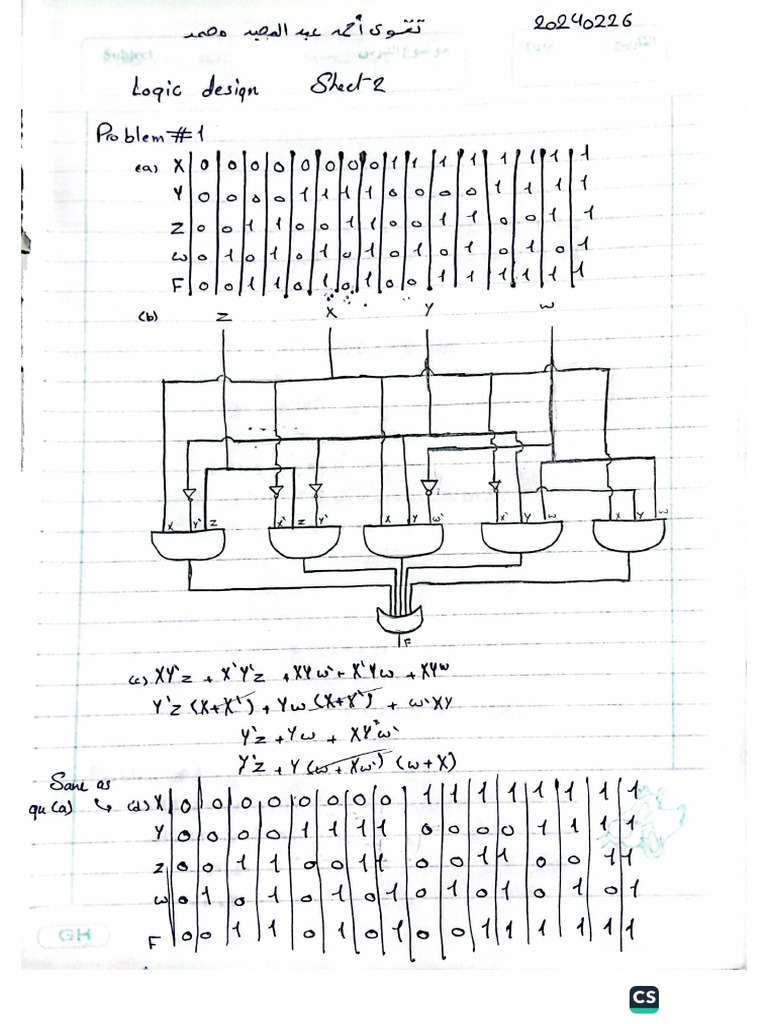 تقوى أحمد عبد المجيد محمد 20240226
Subject موضوع الدرس Date التاريخ
Logic design Sheet 2
Problem #1
(a) X 0 0 0 0 0 0 0 0 1 1 1 1 1 1 1 1
Y 0 0 0 0 1 1 1 1 0 0 0 0 1 1 1 1
Z 0 0 1 1 0 0 1 1 0 0 1 1 0 0 1 1
W 0 1 0 1 0 1 0 1 0 1 0 1 0 1 0 1
F 0 0 1 1 0 1 0 1 0 0 1 1 1 1 1 1
(b) Z X Y W
X Y' Z X' Z Y' X Y W' X' Y W X Y W
F
(c) XY'Z + X'Y'Z + XYW' + X'YW + XYW
Y'Z (X+X') + YW (X+X') + W'XY
Y'Z + YW + XYW'
Y'Z + Y (W+XW') (W+X)
Same as
qu (a) ↳ (d) X 0 0 0 0 0 0 0 0 1 1 1 1 1 1 1 1
Y 0 0 0 0 1 1 1 1 0 0 0 0 1 1 1 1
Z 0 0 1 1 0 0 1 1 0 0 1 1 0 0 1 1
W 0 1 0 1 0 1 0 1 0 1 0 1 0 1 0 1
F 0 0 1 1 0 1 0 1 0 0 1 1 1 1 1 1
GH
CS